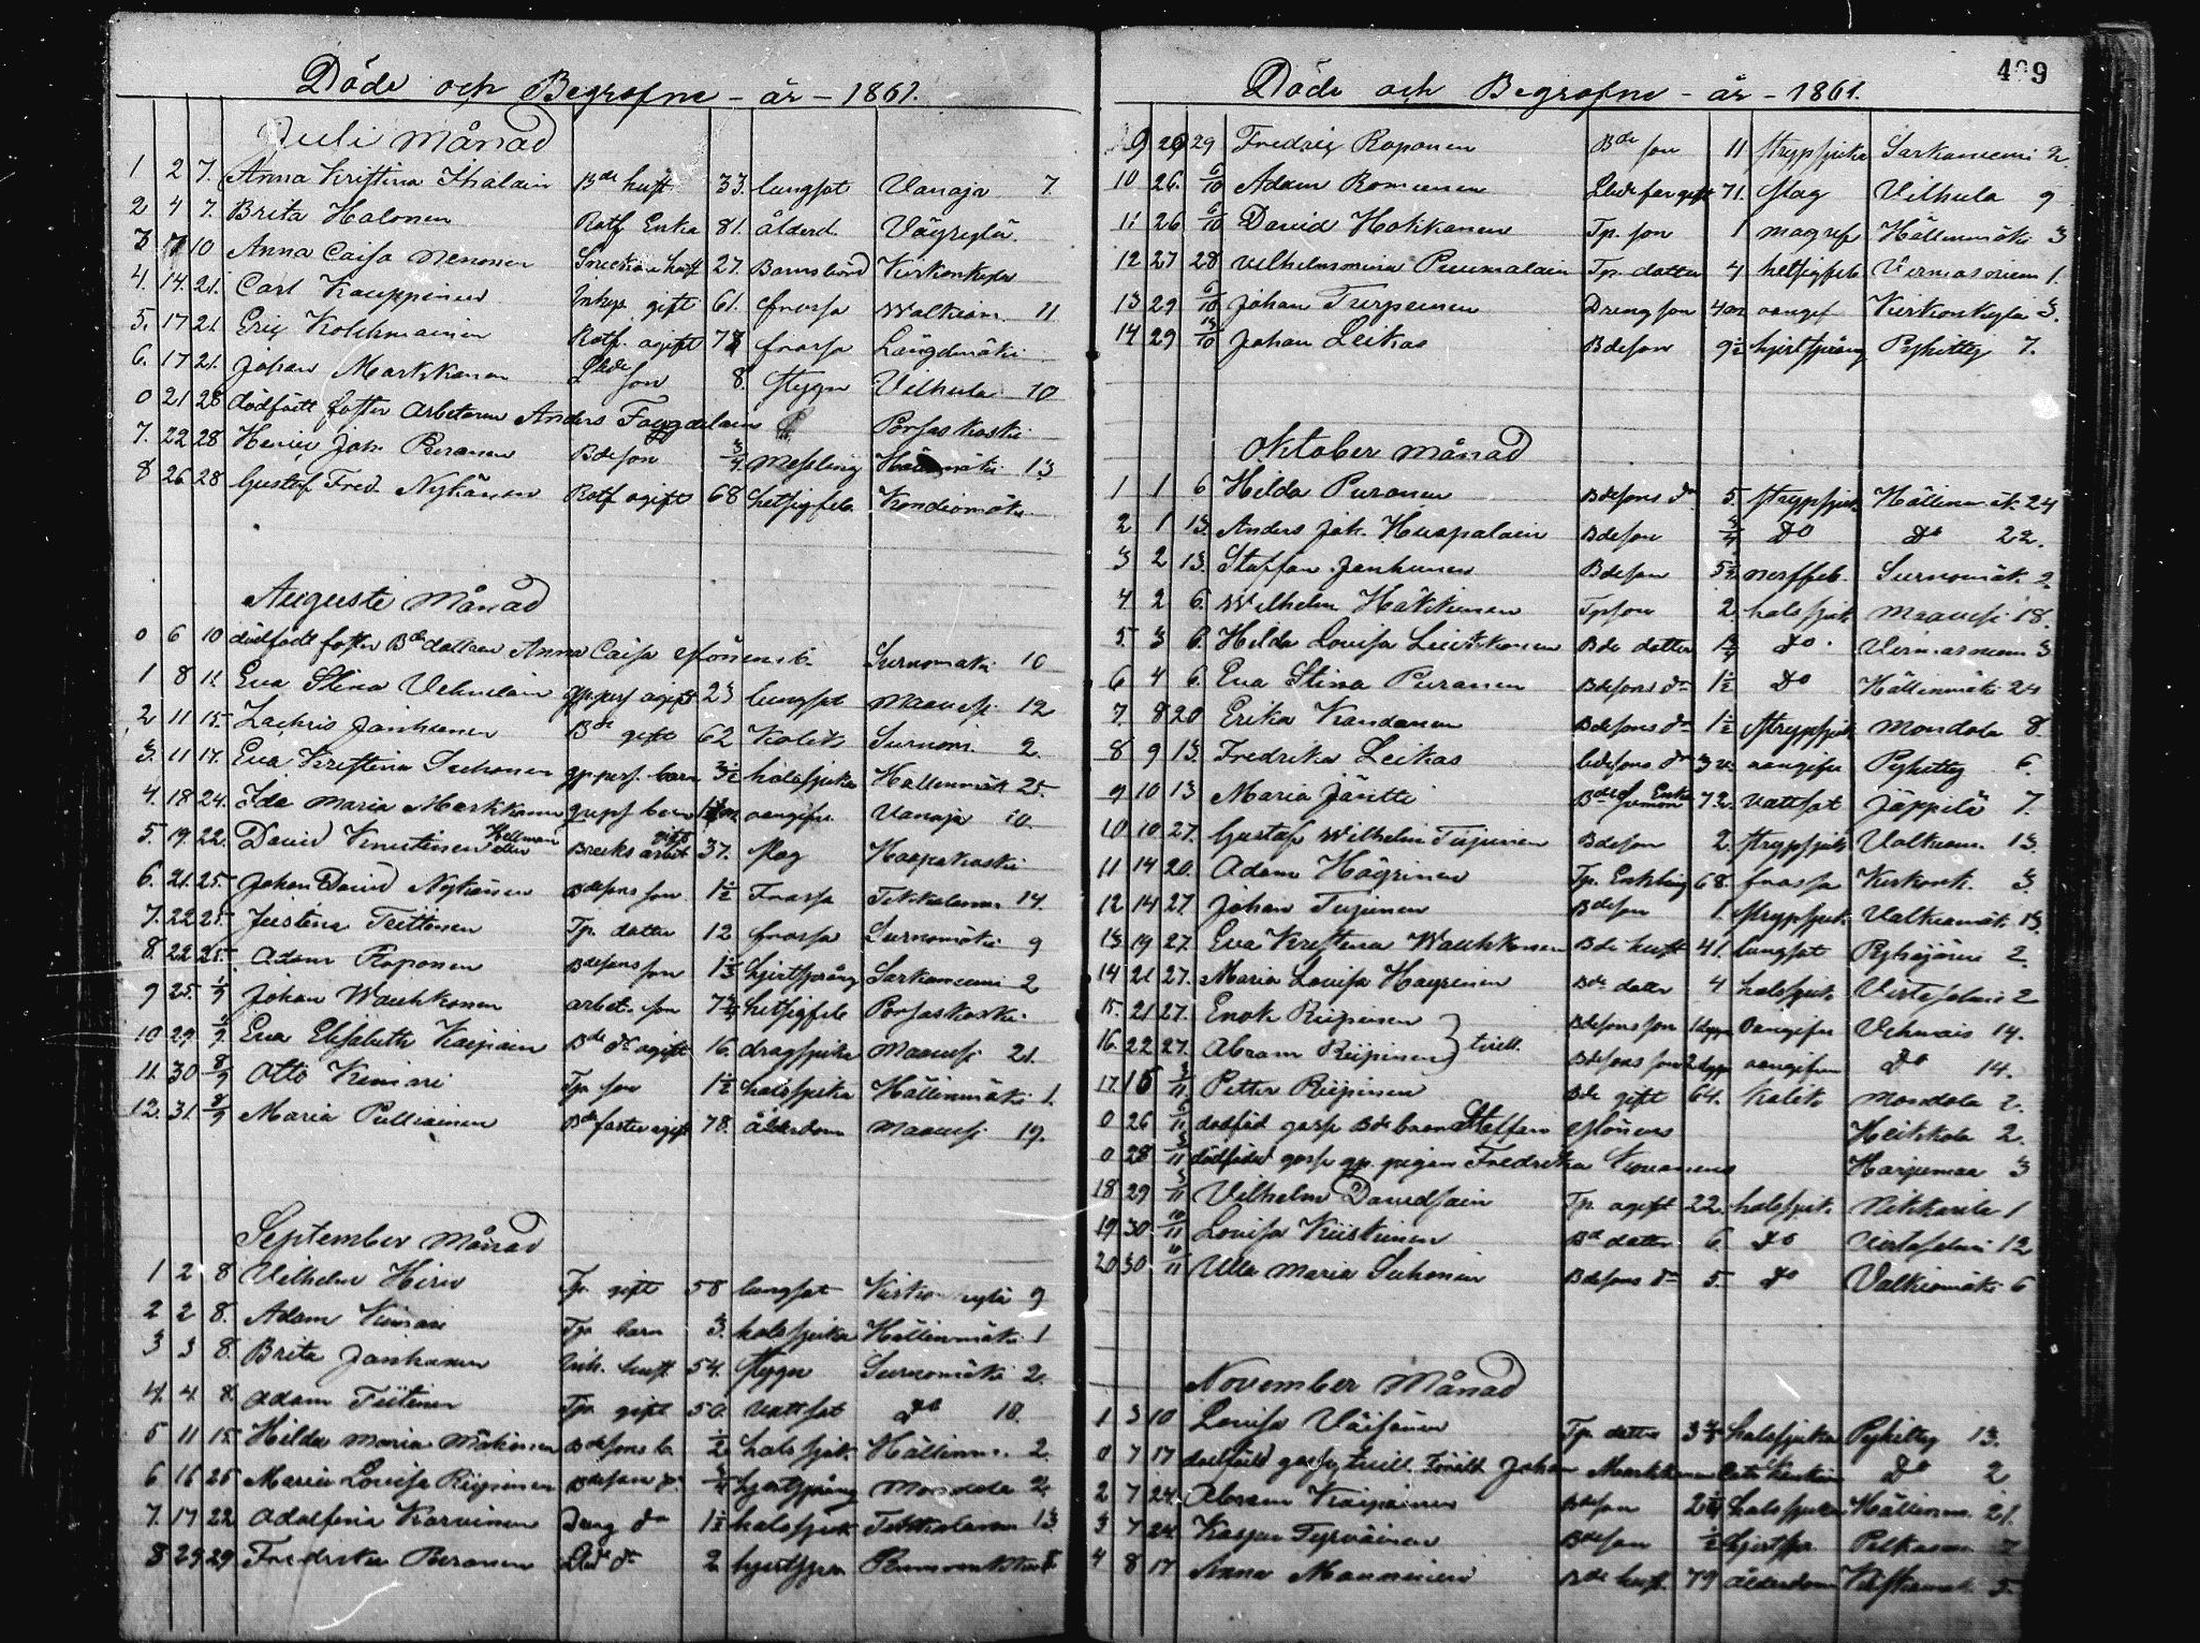 Döde och Begrafne - år - 1861.
Juli Månad
1 2 7. Anna Kristina Ihalain Bde hust 33. lungsot Vanaja 7.
2 4 7. Brita Halonen Rotf Enka 81. ålderd.
3 10 Anna Caisa Nenonen 27. Barnsbörd Kirkonkylä
4. 14. 21. Carl Kauppinen gift 61. frossa Walkiam. 11
5. 17 21. Eric Kolehmainen Rotf. ogift frossa Längelmäki
6. 17 21. Johan Markkanen son 8. Vilhula 10
0 21 28 dödfödt foster arbetaren Anders Porsaskoski
7. 22 28 Henric Joh. Puranen Bdeson 3/4. messling 13
8 26 28 Gustaf Fred. Nykänen Rotf ogift 68 hetsigfeb. Kondiomäki
Augusti Månad
0 6 10 dödfödt foster Bde dottren Anna Caisa Surnomäki 10
1 8 11. Eva Stina Vehvilain 23 lungsot Maavesi 12
2 11 15. Zachris Janhunen Bde gift 62 Kolik Surnom 2.
3. 11 17. Eva Kristina Suhonen barn 3 1/2 halssjuka Hällinmäk 25.
4. 18 24. Ida Maria Markkanen oangifv. Vanaja 10.
5. 19. 22. David Knutinen eller Hellman Bruks arbet gift 37. slag Haapakoski
6. 21. 25. Johan David Nykänen Bdesons son 1 1/2 Frossa Tihkalanm. 14.
7. 22 25. Justina Teittinen Tp. dotter 12 frossa Surnomäki 9
8. 22 25. Adam Roponen Bdesons son 1 1/3 hjertsprång Sarkaniemi 2
9 25. 1/9 Johan Wauhkonen arbet. son 7 3/4 hetsigfeb Porsaskoski
10 29. 9. Eva Elisabeth Kaipiain Bde dr ogift 16. dragsjuka Maavesi 21.
11. 30 8/9 Otto Kimari Tp. son 1 1/2 halssjuka Hällinmäki 1.
12. 31. 8/9 Maria Pulliainen Bde faster ogift 78. ålderdom Maavesi 19.
September Månad
1 2 8 Vilhelm Hirv Tp. gift 58 lungsot 9
2 2 8. Adam Kimari Tp. barn 3. halssjuka Hällinmäki 1
3 3 8. Brita Janhunen Inh. hust 54. Surnomäki 2.
4. 4. 8. Adam Tiitinen Tp. gift 50. vattsot Do 10.
5 11 15. Hilda Maria Mäkinen 1/2 halssjuk. Hällinm. 2.
6. 16 25 Maria Lovisa Riipinen hjertsprång Mondola 2.
7. 17 22 Adolfina Karvinen Dreng dr 1 1/2 halssjuk. Tihkalanm 13
8 29 29. Fredrika Puranen dr 2 hjertspr
Döde och Begrafne - år - 1861.
409
9 29 29 Fredric Roponen Bde son 11 strypsjuka Sarkaniemi 2.
10 26. 6/10 Adam Romunen 71. slag Vilhula 9
11. 26 6/10 David Hokkanen Tp. son 1 magref Hällinmäki 3
12 27 28 Vilhelmina Puumalain Tp. dotter 4 hetsigfeb. 1.
13 29 6/10 Johan Turpeinen Dreng son 4m oangif Kirkonkylä 3.
14 29 13/10 Johan Leikas Bdeson 9 1/2 hjertsprång Pykitty 7.
Oktober Månad
1 1 6 Hilda Puranen Bdesons dr 5. strypsjuk. Hällinmäk. 24
2 1 13. Anders Joh. Huopalain Bdeson 3/4 Do Do 22.
3 2 13. Staffan Janhunen Bdeson 5 1/2 nerffeb. Surnomäk. 2.
4 2 6. Wilhelm Häkkinen Tpson 2. halssjuk Maavesi 18.
5. 3 6. Hilda Lovisa Bde dotter 1 3/4 Do 3
6 4 6. Eva Stina Puranen Bdesons dr 1 1/2 Do Hällinmäki 24
7. 8 20 Erika Kandanen Bdesons dr 1 1/2 strypsjuk Mondola 8
8 9 13. Fredrika Leikas Bdesons dr 3 v. oangifv Pykitty 6.
9 10 13 Maria Jäntti Enka 72. vattsot Jäppilä 7.
10 10 27. Gustaf Wilhelm Tiijanen Bdeson 2. strypsjuk Valkiam. 13.
11 14 20. Adam Häyrinen Tp. Enkling 68. frossa Kirkonk. 3.
12 14 27. Johan Bdeson 1. strypsjuk. Valkiamäk. 13.
13 19 27. Eva Kristina Wauhkonen Bde hust 41. lungsot 2.
14 21 27. Maria Lovisa Häyrinen Bde dotter 4 halssjuk. Virtasalmi 2
15. 21 27. Enok Riipinen Bdesons son 1 dygn oangifv 14.
16. 22 27. Abram Riipinen tvill. Bdesons son 2 dygn oangifven Do 14.
17. 15 3/11 Petter Riipinen Bde gift 64. kolik Mondola 2.
0 26 6/11 dödföd goss Bde Staffan Heikkola 2.
0 28 3/11 dödfödd goss pigan Fredrika Harjumaa 3
18 29 3/11 Vilhelm Davidsain Tp. ogift 22. halssjuk. Nikkarila 1
19 30. 10/11 Lovisa Kiiskinen Bd dotter. 6. Do Virtasalmi 12
20 30. 10/11 Ulla Maria Suhonen Bdesons dr 5. Do Valkiamäki 6
November Månad
1 3 10 Lovisa Väisänen Tp. dotter halssjuka Pykitty 13.
0 7 17 dödfödd gosse tvill. Johan Markkanen Do 2
2 7 24. Abram Kaipainen Bdeson halssjuka Hällinm. 21.
3 7 24. Kasper Tyrväinen Bdeson 1/2 hjertspr
4 8 17 Anna Manninen Bde hust. 79 ålderdom 5.